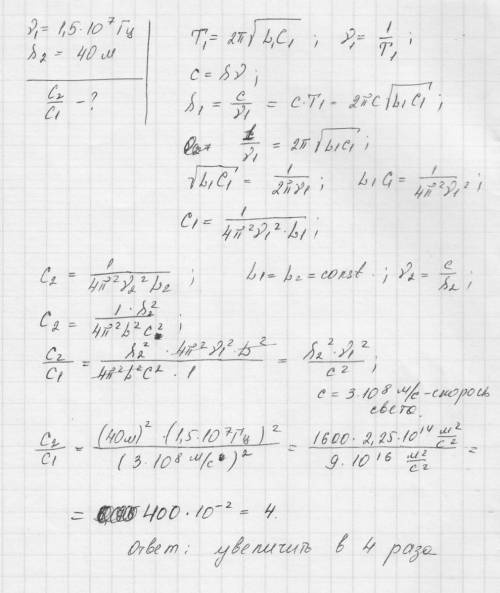 ν₁ = 1,5·10⁷ Гц
λ₂ = 40 м
C₂/C₁ - ?
T₁ = 2π√(L₁C₁) ; ν₁ = 1/T₁ ;
c = λν ;
λ₁ = c/ν₁ = c·T₁ - 2πc√(L₁C₁) ;
1/ν₁ = 2π√(L₁C₁) ;
√(L₁C₁) = 1/(2πν₁) ; L₁C₁ = 1/(4π²ν₁²) ;
C₁ = 1/(4π²ν₁²·L₁) ;
C₂ = 1/(4π²ν₂²L₂) ; L₁ = L₂ = const. ; ν₂ = c/λ₂ ;
C₂ = 1·λ₂²/(4π²L²c²) ;
C₂/C₁ = λ₂²·4π²ν₁²·L²/(4π²L²c²·1) = λ₂²·ν₁²/c² ;
c = 3·10⁸ м/с - скорость
света.
C₂/C₁ = (40м)²·(1,5·10⁷Гц)²/(3·10⁸ м/с)² = 1600·2,25·10¹⁴ м²/с² / 9·10¹⁶ м²/с² =
= 400·10⁻² = 4.
Ответ: увеличить в 4 раза